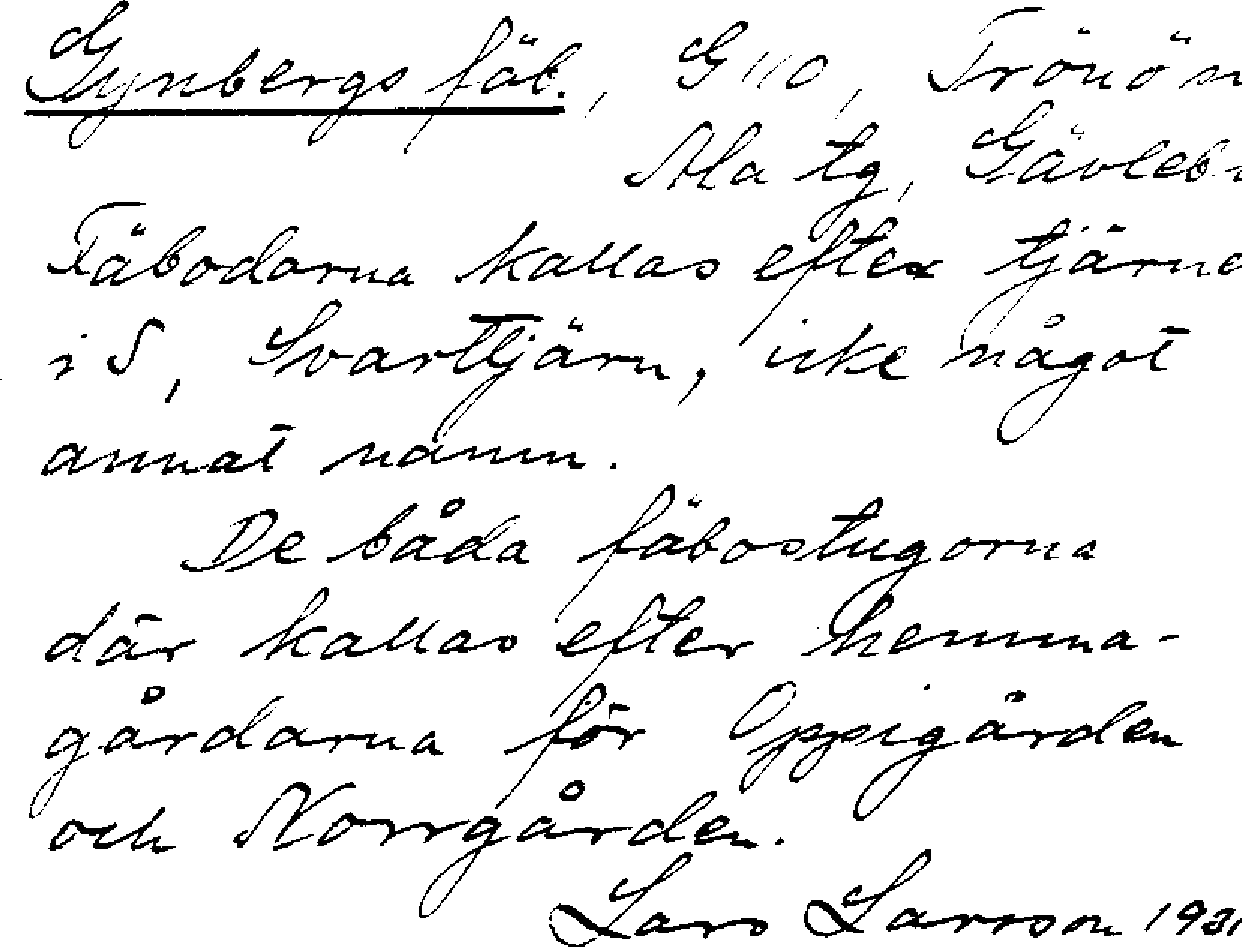 Gynbergs fäb., G 110, Trönö sn
Ala tg, Gävleb.
Fäbodarna kallas efter tjärne
i S, Svarttjärn, icke något
annat namn.
De båda fäbostugorna
där kallas efter hemma-
gårdarna för Oppigården
och Norrgården.
Lars Larsson 1931